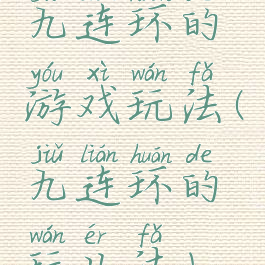 九连环的
yóu xì wán fǎ
游戏玩法(
jiǔ lián huán de
九连环的
wán ér fǎ